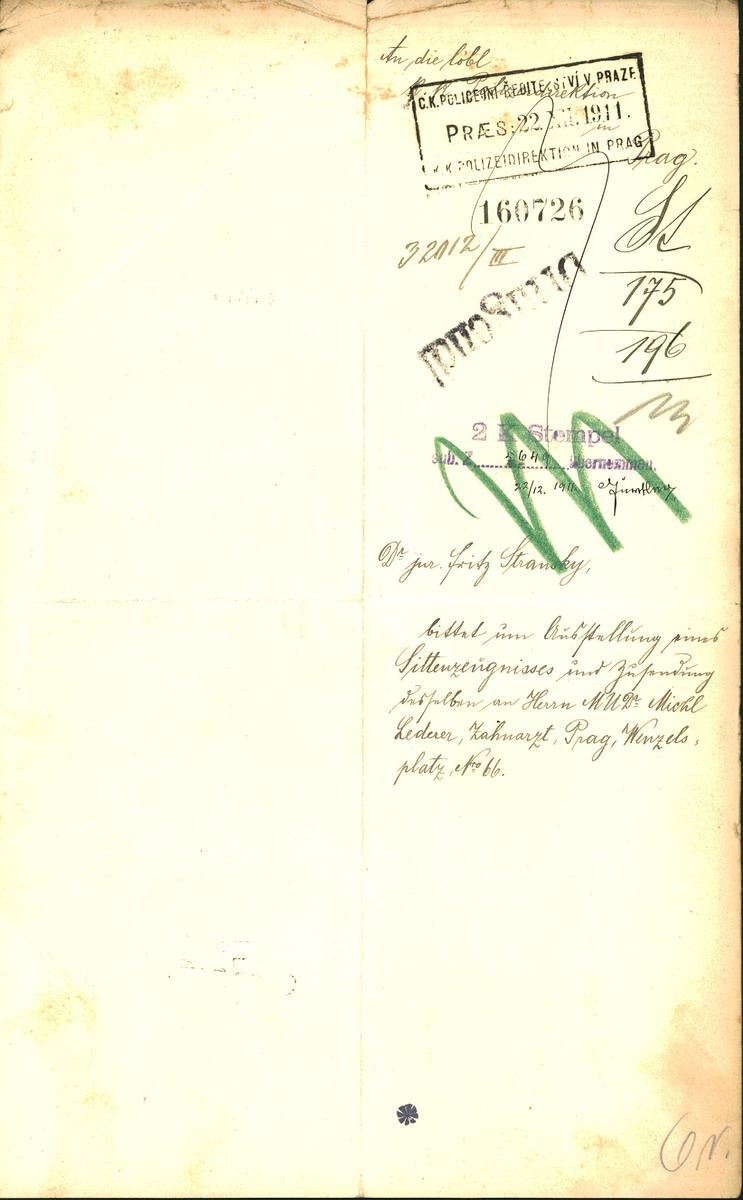 An die löbl
k. k. Polizeidirektion
in
Prag.
C.K. POLICEJNÍ ŘEDITELSTVÍ V PRAZE
PRÆS: 22.XII.1911.
K.K. POLIZEIDIREKTION IN PRAG
160726
32012/III
St
175
196
2 K Stempel
sub. Z. 5649 übernommen.
22/12. 1911
Dr jur. Fritz Stransky,
bittet um Ausstellung eines
Sittenzeugnisses und Zusendung
desselben an Herrn MUDr Michl
Lederer, Zahnarzt, Prag, Wenzels-
platz, Nro 66.